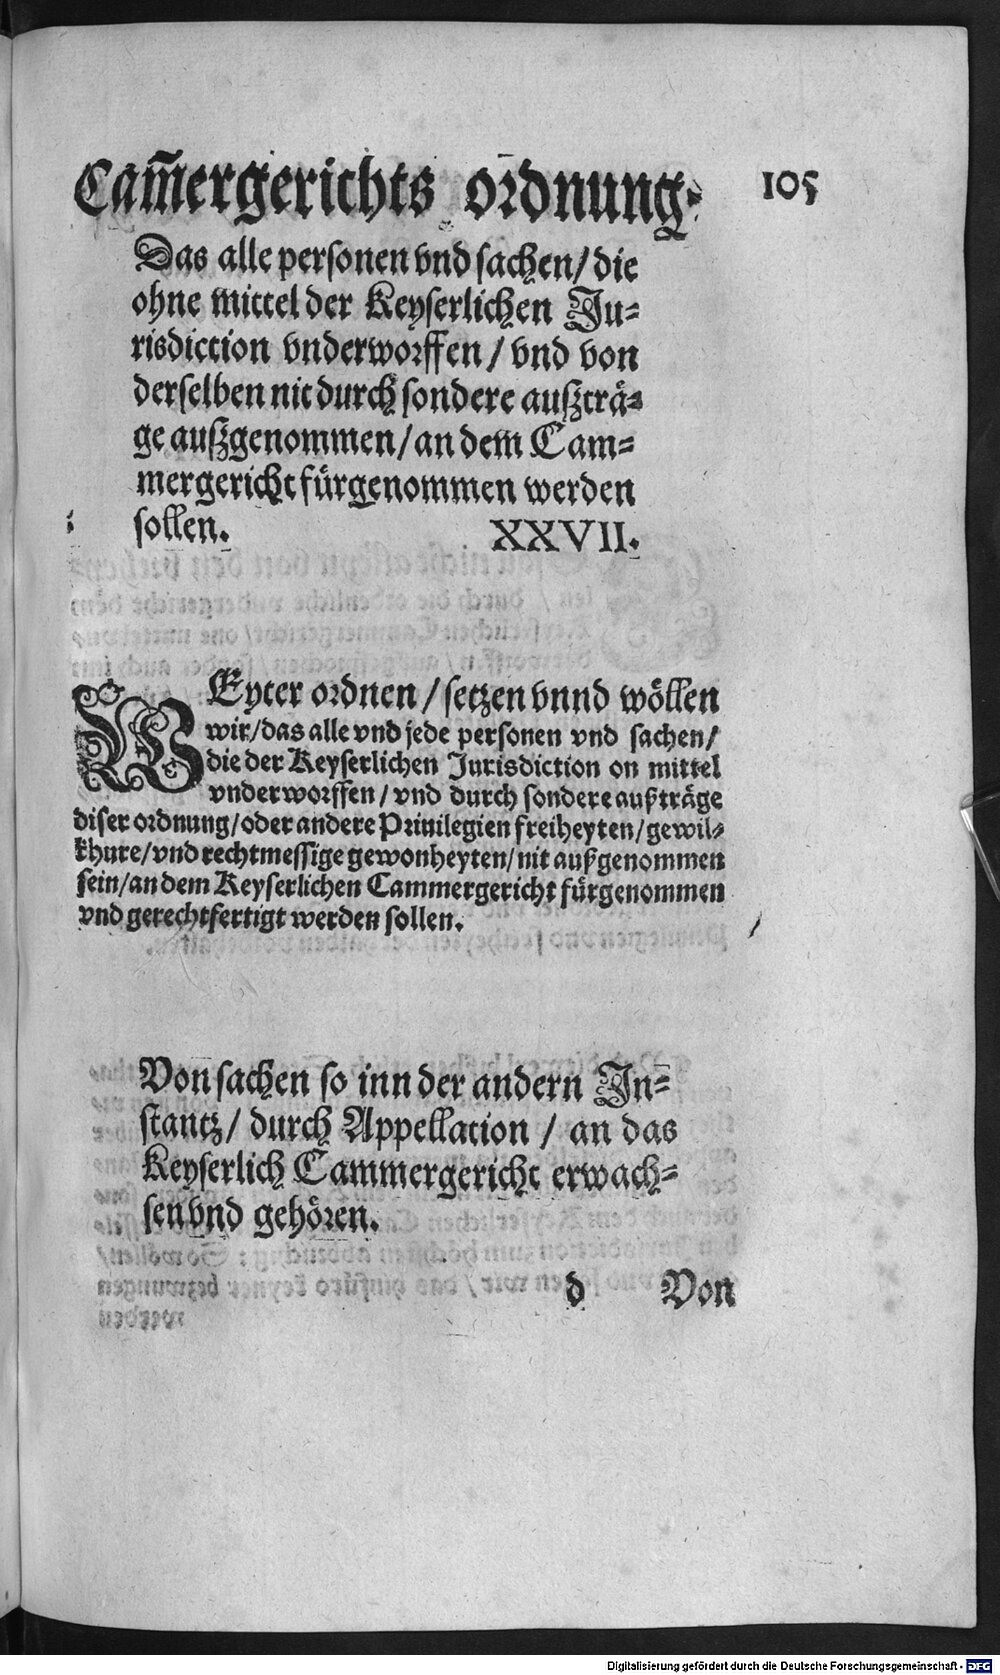 Cam̃ergerichts ordnung. 105
Das alle personen vnd sachen/ die
ohne mittel der Keyserlichen Ju-
risdiction vnderworffen / vnd von
derselben nit durch sondere außträ-
ge außgenommen/ an dem Cam-
mergericht fürgenommen werden
sollen. XXVII.
WEyter ordnen / setzen vnnd wöllen
wir/ das alle vnd jede personen vnd sachen/
die der Keyserlichen Jurisdiction on mittel
vnderworffen / vnd durch sondere außträge
diser ordnung/ oder andere Priuilegien freiheyten/ gewil-
khure/ vnd rechtmessige gewonheyten/ nit außgenommen
sein/ an dem Keyserlichen Cammergericht fürgenommen
vnd gerechtfertigt werden sollen.
Von sachen so inn der andern In-
stantz/ durch Appellation / an das
Keyserlich Cammergericht erwach-
sen vnd gehören.
d Von
Digitalisierung gefördert durch die Deutsche Forschungsgemeinschaft - DFG